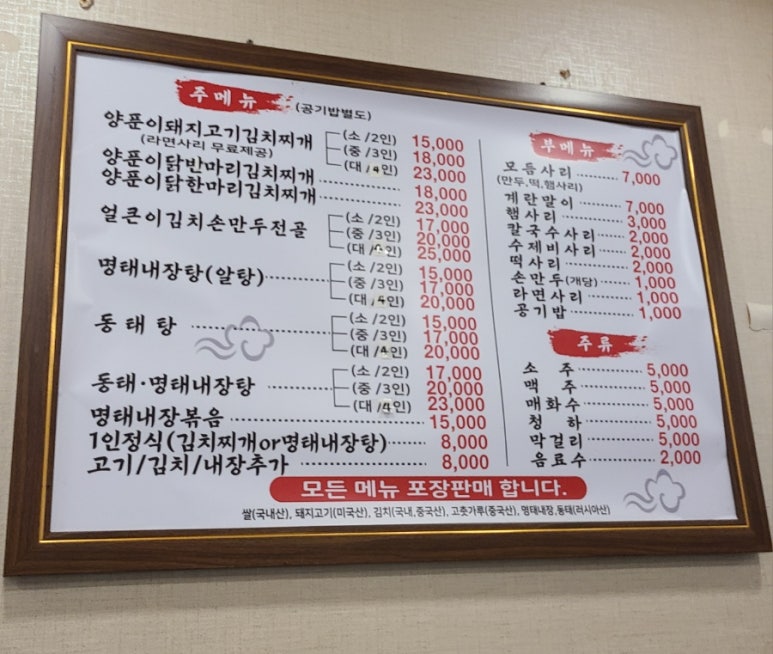 주메뉴 (공기밥별도)
양푼이돼지고기김치찌개 (소/2인) 15,000
(라면사리 무료제공) (중/3인) 18,000
(대/4인) 23,000
양푼이닭반마리김치찌개 18,000
양푼이닭한마리김치찌개 23,000
얼큰이김치손만두전골 (소/2인) 17,000
(중/3인) 20,000
(대/4인) 25,000
명태내장탕(알탕) (소/2인) 15,000
(중/3인) 17,000
(대/4인) 20,000
동태탕 (소/2인) 15,000
(중/3인) 17,000
(대/4인) 20,000
동태·명태내장탕 (소/2인) 17,000
(중/3인) 20,000
(대/4인) 23,000
명태내장볶음 15,000
1인정식(김치찌개or명태내장탕) 8,000
고기/김치/내장추가 8,000
부메뉴
모듬사리 7,000
(만두,떡,햄사리)
계란말이 7,000
햄사리 3,000
칼국수사리 2,000
수제비사리 2,000
떡사리 2,000
손만두(개당) 1,000
라면사리 1,000
공기밥 1,000
주류
소주 5,000
맥주 5,000
매화수 5,000
청하 5,000
막걸리 5,000
음료수 2,000
모든 메뉴 포장판매 합니다.
쌀(국내산), 돼지고기(미국산), 김치(국내,중국산), 고춧가루(중국산), 명태내장,동태(러시아산)